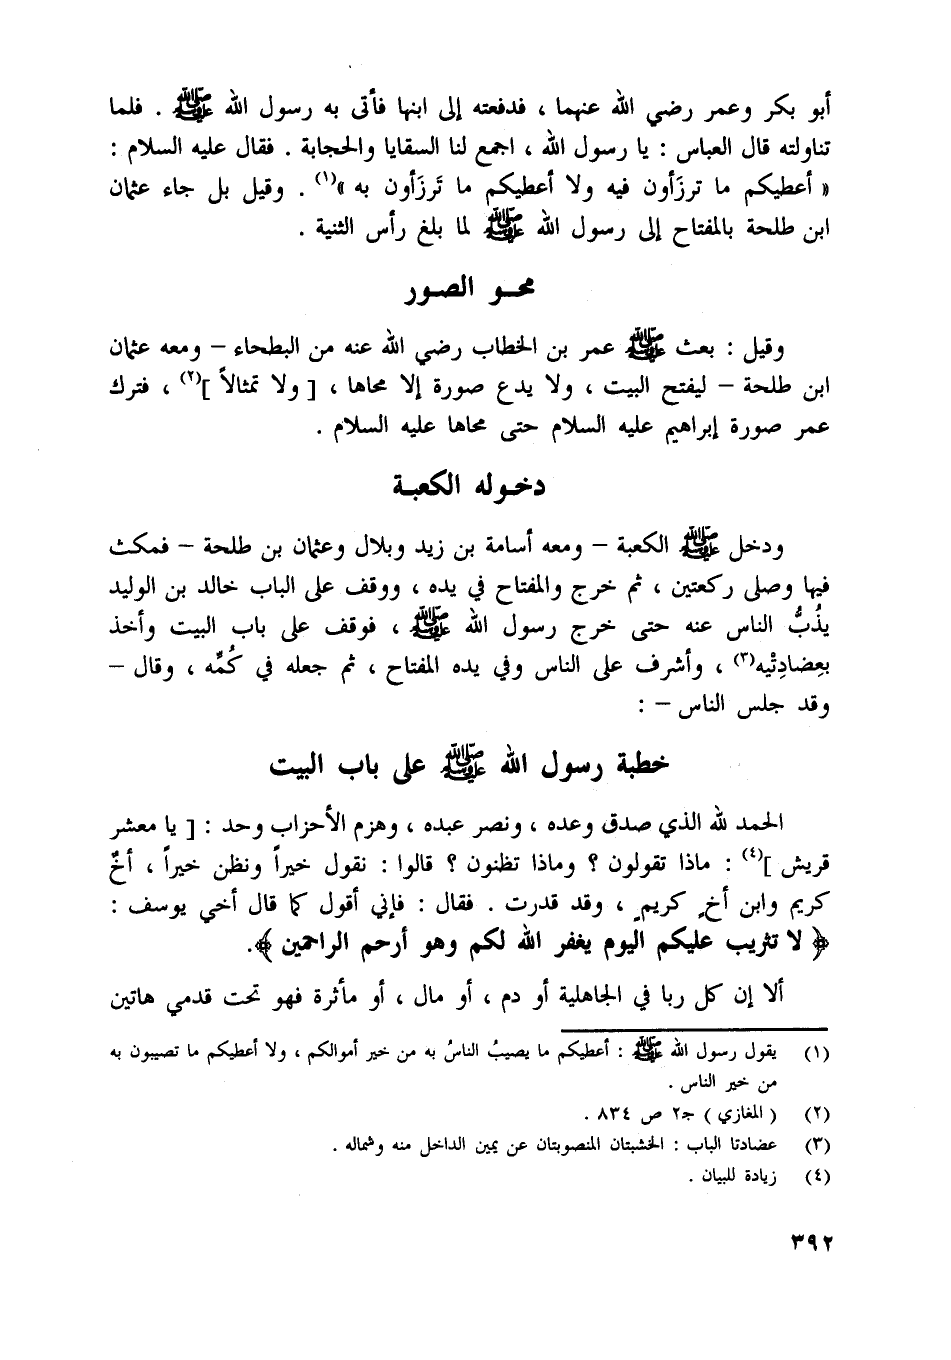 أبو بكر وعمر رضي الله عنهما ، فدفعته إلى ابنها فأتى به رسول الله ﷺ . فلما
تناولته قال العباس : يا رسول الله ، اجمع لنا السقايا والحجابة . فقال عليه السلام :
« أعطيكم ما ترزَأون فيه ولا أعطيكم ما تَرزَأون به »(١) . وقيل بل جاء عثمان
ابن طلحة بالمفتاح إلى رسول الله ﷺ لما بلغ رأس الثنية .
محـو الصـور
وقيل : بعث ﷺ عمر بن الخطاب رضي الله عنه من البطحاء – ومعه عثمان
ابن طلحة – ليفتح البيت ، ولا يدع صورة إلا محاها ، [ ولا تمثالاً ](٢) ، فترك
عمر صورة إبراهيم عليه السلام حتى محاها عليه السلام .
دخـوله الكعبـة
ودخل ﷺ الكعبة – ومعه أسامة بن زيد وبلال وعثمان بن طلحة – فمكث
فيها وصلى ركعتين ، ثم خرج والمفتاح في يده ، ووقف على الباب خالد بن الوليد
يذُبُّ الناس عنه حتى خرج رسول الله ﷺ ، فوقف على باب البيت وأخذ
بعِضادتْيه(٣) ، وأشرف على الناس وفي يده المفتاح ، ثم جعله في كُمِّه ، وقال –
وقد جلس الناس – :
خطبة رسول الله ﷺ على باب البيت
الحمد لله الذي صدق وعده ، ونصر عبده ، وهزم الأحزاب وحد : [ يا معشر
قريش ](٤) : ماذا تقولون ؟ وماذا تظنون ؟ قالوا : نقول خيراً ونظن خيراً ، أخٌ
كريم وابن أخٍ كريمٍ ، وقد قدرت . فقال : فإني أقول كما قال أخي يوسف :
﴿ لا تثريب عليكم اليوم يغفر الله لكم وهو أرحم الراحمين ﴾.
ألا إن كل ربا في الجاهلية أو دم ، أو مال ، أو مأثرة فهو تحت قدمي هاتين
(١) يقول رسول الله ﷺ : أعطيكم ما يصيبُ الناسُ به من خير أموالكم ، ولا أعطيكم ما تصيبون به
من خير الناس .
(٢) ( المغازي ) جـ٢ ص ٨٣٤ .
(٣) عضادتا الباب : الخشبتان المنصوبتان عن يمين الداخل منه وشماله .
(٤) زيادة للبيان .
٣٩٢